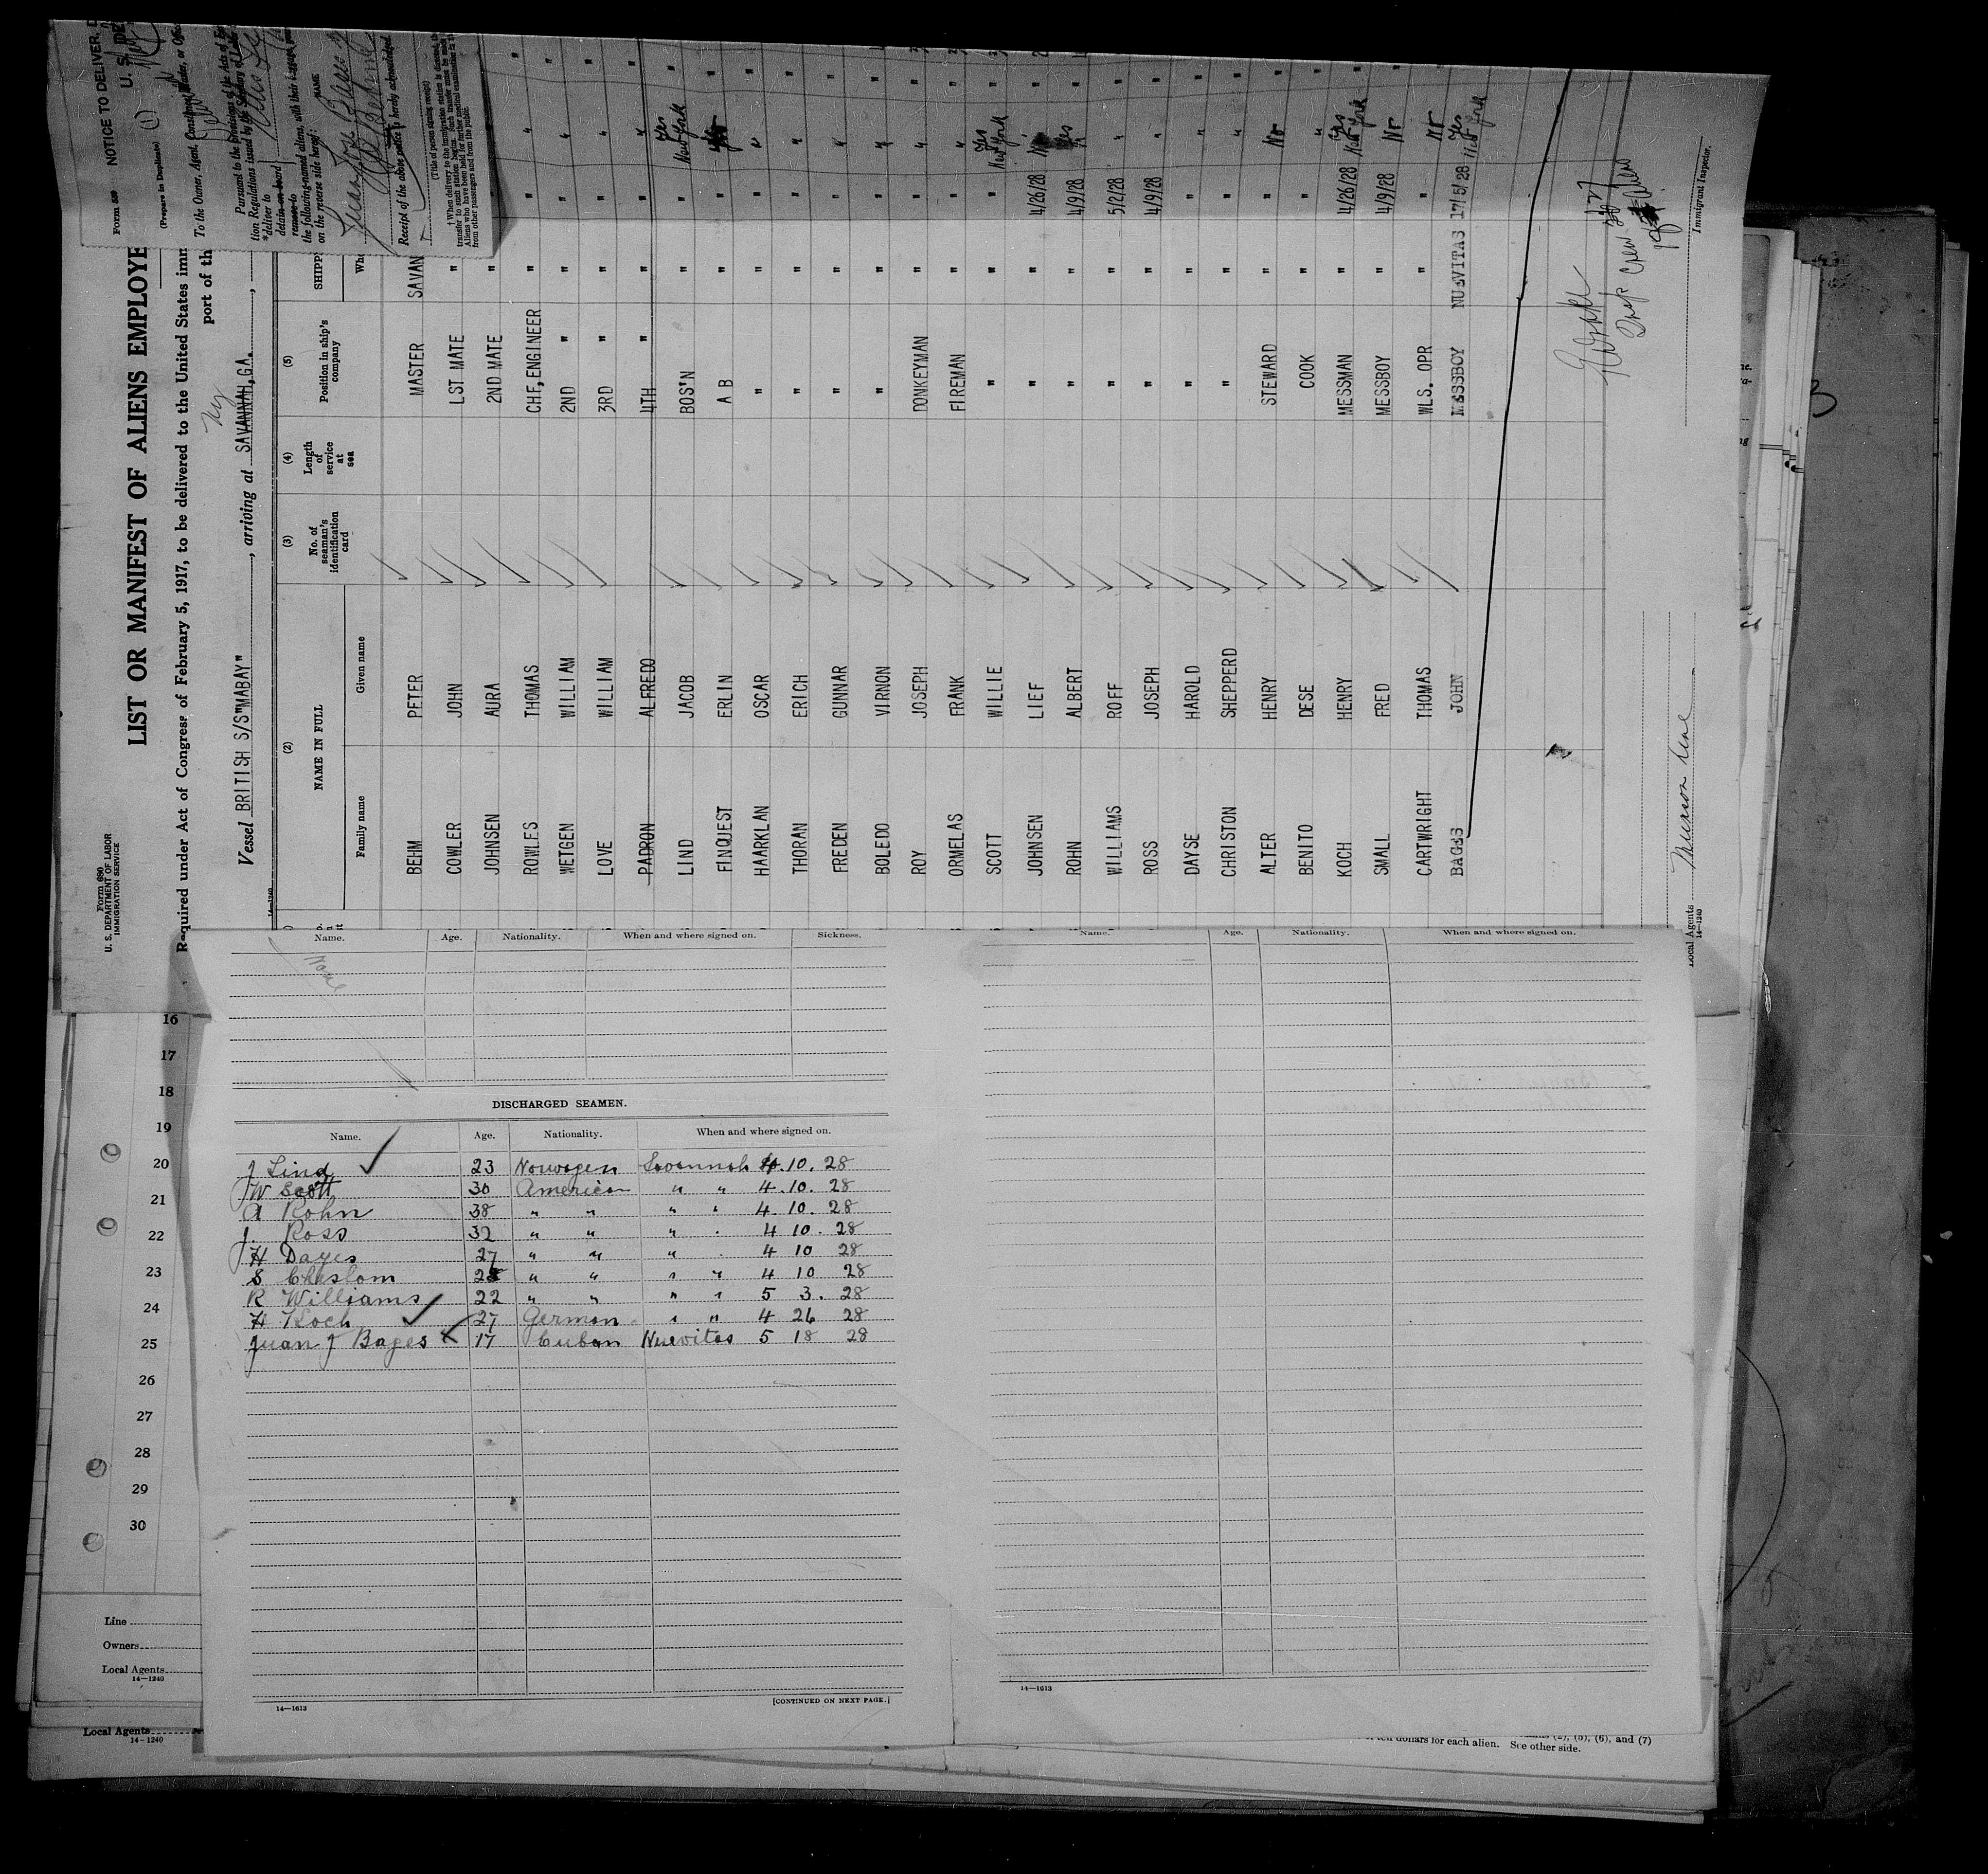 Form 680
U. S. DEPARTMENT OF LABOR
IMMIGRATION SERVICE
LIST OR MANIFEST OF ALIENS EMPLOYE
Required under Act of Congress of February 5, 1917, to be delivered to the United States imm
port of th
Ny
Vessel BRITISH S/S"MABAY", arriving at SAVANNAH,GA.,
14—1240
(2) (3) (4) (5)
NAME IN FULL No. of seaman's identification card Length of service at sea Position in ship's company SHIPP
Family name Given name Whe
BEHM PETER MASTER SAVAN
COWLER JOHN LST MATE " "
JOHNSEN AURA 2ND MATE " "
ROWLES THOMAS CHF,ENGINEER " " " "
WETGEN WILLIAM 2ND " " " " "
LOVE WILLIAM 3RD " " " " "
PADRON ALFREDO 4TH " " " " "
LIND JACOB BOS'N " " Yes New York "
FINQUEST ERLIN A B " " "
HAARKLAN OSCAR " " " " "
THORAN ERICH " " " " "
FREDEN GUNNAR " " " " "
BOLEDO VIRNON " " " " "
ROY JOSEPH DONKEYMAN " " " "
ORMELAS FRANK FIREMAN " " " "
SCOTT WILLIE " " " Yes New York "
JOHNSEN LIEF " " 4/26/28 "
ROHN ALBERT " " 4/9/28 Yes "
WILLIAMS ROFF " " 5/2/28 " "
ROSS JOSEPH " " 4/9/28 " "
DAYSE HAROLD " " " " "
CHRISTON SHEPPERD " " " " "
ALTER HENRY STEWARD " " No "
BENITO DESE COOK " " " "
KOCH HENRY MESSMAN " 4/26/28 Yes New York "
SMALL FRED MESSBOY " 4/9/28 No "
CARTWRIGHT THOMAS WLS. OPR " " No "
BAGES JOHN MESSBOY NUEVITAS 17/5/28 Yes New York
Immigrant Inspector.
Local Agents Munson Line
14—1240
Form 559
NOTICE TO DELIVER, D
U. S. IDE
(Prepare in Duplicate) (1)
To the Owner, Agent, Consignee, Master, or Offic
Pursuant to the provisions of the Acts of
tion Regulations issued by the Secretary of Labor
*deliver to
detain on board
remove to
the following-named aliens, with their baggage,
on the reverse side hereof:
NAME
Juan Jose Bages
Receipt of the above notice is hereby acknowledged.
(Title of person signing receipt)
† When delivery to the immigration station is directed, th
transfer to such station begins. Such transfer must be made
Aliens who have been held for further medical examination
from other passengers and from the public.
Name. Age. Nationality. When and where signed on. Sickness.
None
DISCHARGED SEAMEN.
Name. Age. Nationality. When and where signed on.
J Lind 23 Norwegen Savannah 4. 10. 28
W Scott 30 American " " 4. 10. 28
A Rohn 38 " " " " 4. 10. 28
J. Ross 32 " " " " 4 10. 28
H Dayes 27 " " " " 4 10 28
S Cheslom 28 " " " " 4 10 28
R Williams 22 " " " " 5 3. 28
H Koch 27 German " " 4 26 28
Juan J Bages 17 Cuban Nuevitas 5 18 28
14—1613 [CONTINUED ON NEXT PAGE.]
Name. Age. Nationality. When and where signed on.
14—1613
16
17
18
19
20
21
22
23
24
25
26
27
28
29
30
Line
Owners
Local Agents
14—1240
Local Agents
14-1240
ten dollars for each alien. See other side.
(5), (6), and (7)